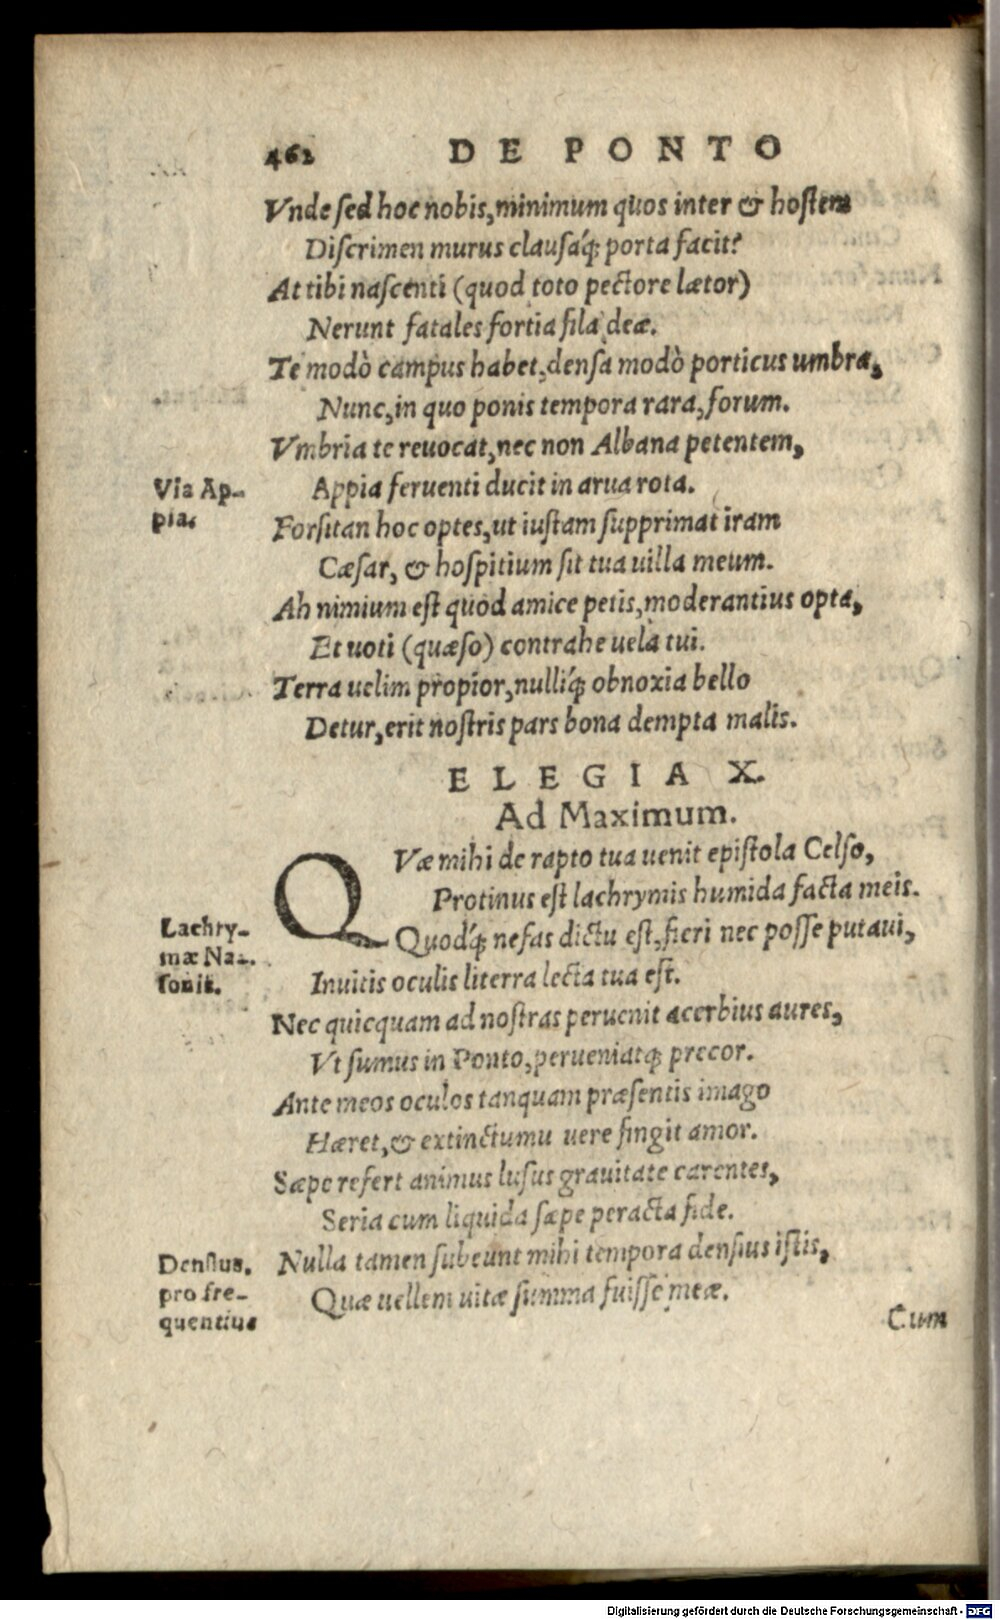 462 DE PONTO
Vnde ſed hoc nobis, minimum quos inter & hoſtem
Diſcrimen murus clauſáq; porta facit?
At tibi naſcenti (quod toto pectore lætor)
Nerunt fatales fortia fila deæ.
Te modò campus habet, denſa modò porticus umbra,
Nunc, in quo ponis tempora rara, forum.
Vmbria te reuocat, nec non Albana petentem,
Via Ap-
Appia feruenti ducit in arua rota.
pia.
Forſitan hoc optes, ut iuſtam ſupprimat iram
Cæſar, & hoſpitium ſit tua uilla meum.
Ah nimium eſt quod amice petis, moderantius opta,
Et uoti (quæſo) contrahe uela tui.
Terra uelim propior, nulliq́; obnoxia bello
Detur, erit noſtris pars bona dempta malis.
ELEGIA X.
Ad Maximum.
QVæ mihi de rapto tua uenit epiſtola Celſo,
Protinus eſt lachrymis humida facta meis.
Lachry-
mæ Na-
ſonis.
Quodq́; nefas dictu eſt, fieri nec poſſe putaui,
Inuitis oculis literra lecta tua eſt.
Nec quicquam ad noſtras peruenit acerbius aures,
Vt ſumus in Ponto, perueniatq; precor.
Ante meos oculos tanquam præſentis imago
Hæret, & extinctumu uere fingit amor.
Sæpe refert animus luſus grauitate carentes,
Seria cum liquida ſæpe peracta fide.
Denſius.
pro fre-
quentius
Nulla tamen ſubeunt mihi tempora denſius iſtis,
Quæ uellem uitæ ſumma fuiſſe meæ.
Cum
Digitalisierung gefördert durch die Deutsche Forschungsgemeinschaft - DFG